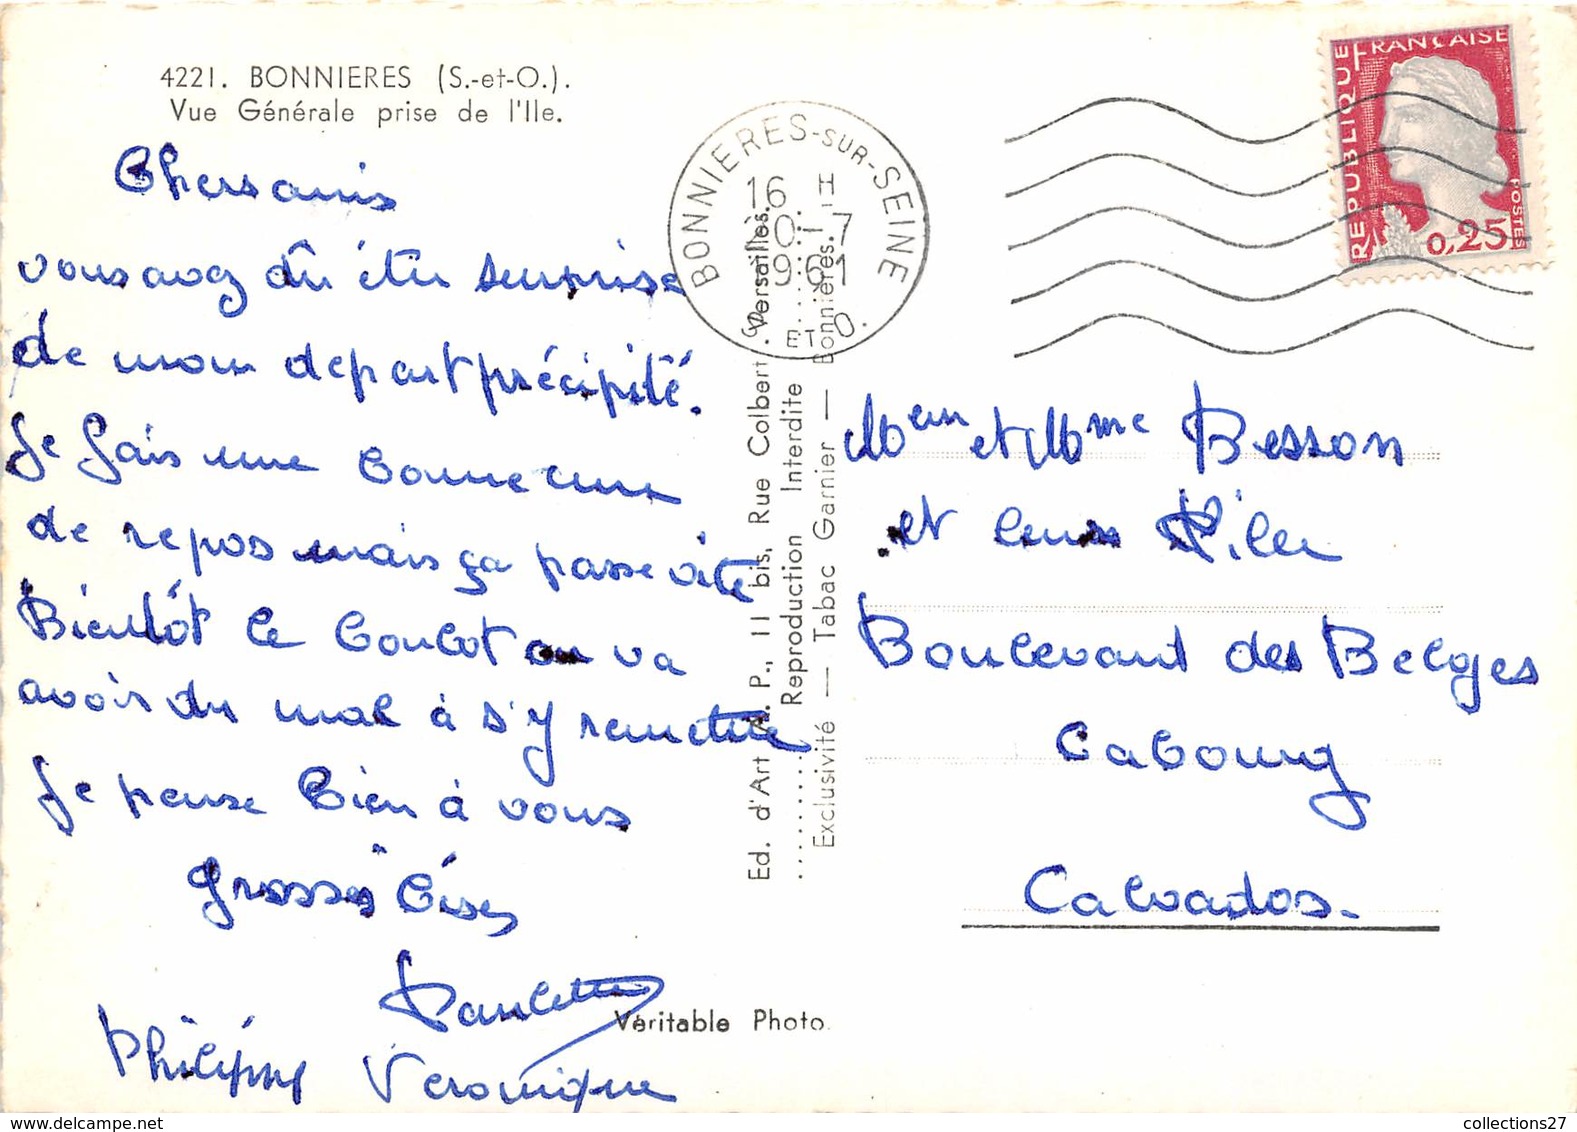 4221. BONNIERES (S.-et-O.).
Vue Générale prise de l'Ile.
Chers amis
vous avez dû être surprise
de mon depart précipité.
Je fais une bonne cure
de repos mais ça passe vite
Bientôt le boulot on va
avoir du mal à s'y remettre
Je pense bien à vous
grosses bises
Paulette
Philippe Veronique
BONNIERES-SUR-SEINE
16 H
0-7
1961
ET O.
Ed. d'Art A. P., 11 bis, Rue Colbert Versailles.
Reproduction Interdite
Exclusivité — Tabac Garnier — Bonnières.
Véritable Photo.
REPUBLIQUE FRANÇAISE
0,25
POSTES
Meur et Mme Besson
et leur fille
Boulevard des Belges
Cabourg
Calvados.
collections27